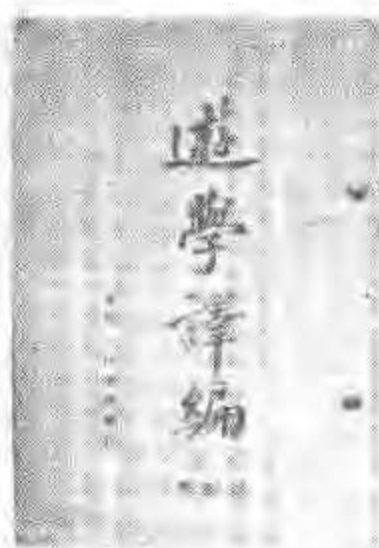 遊學譯編一